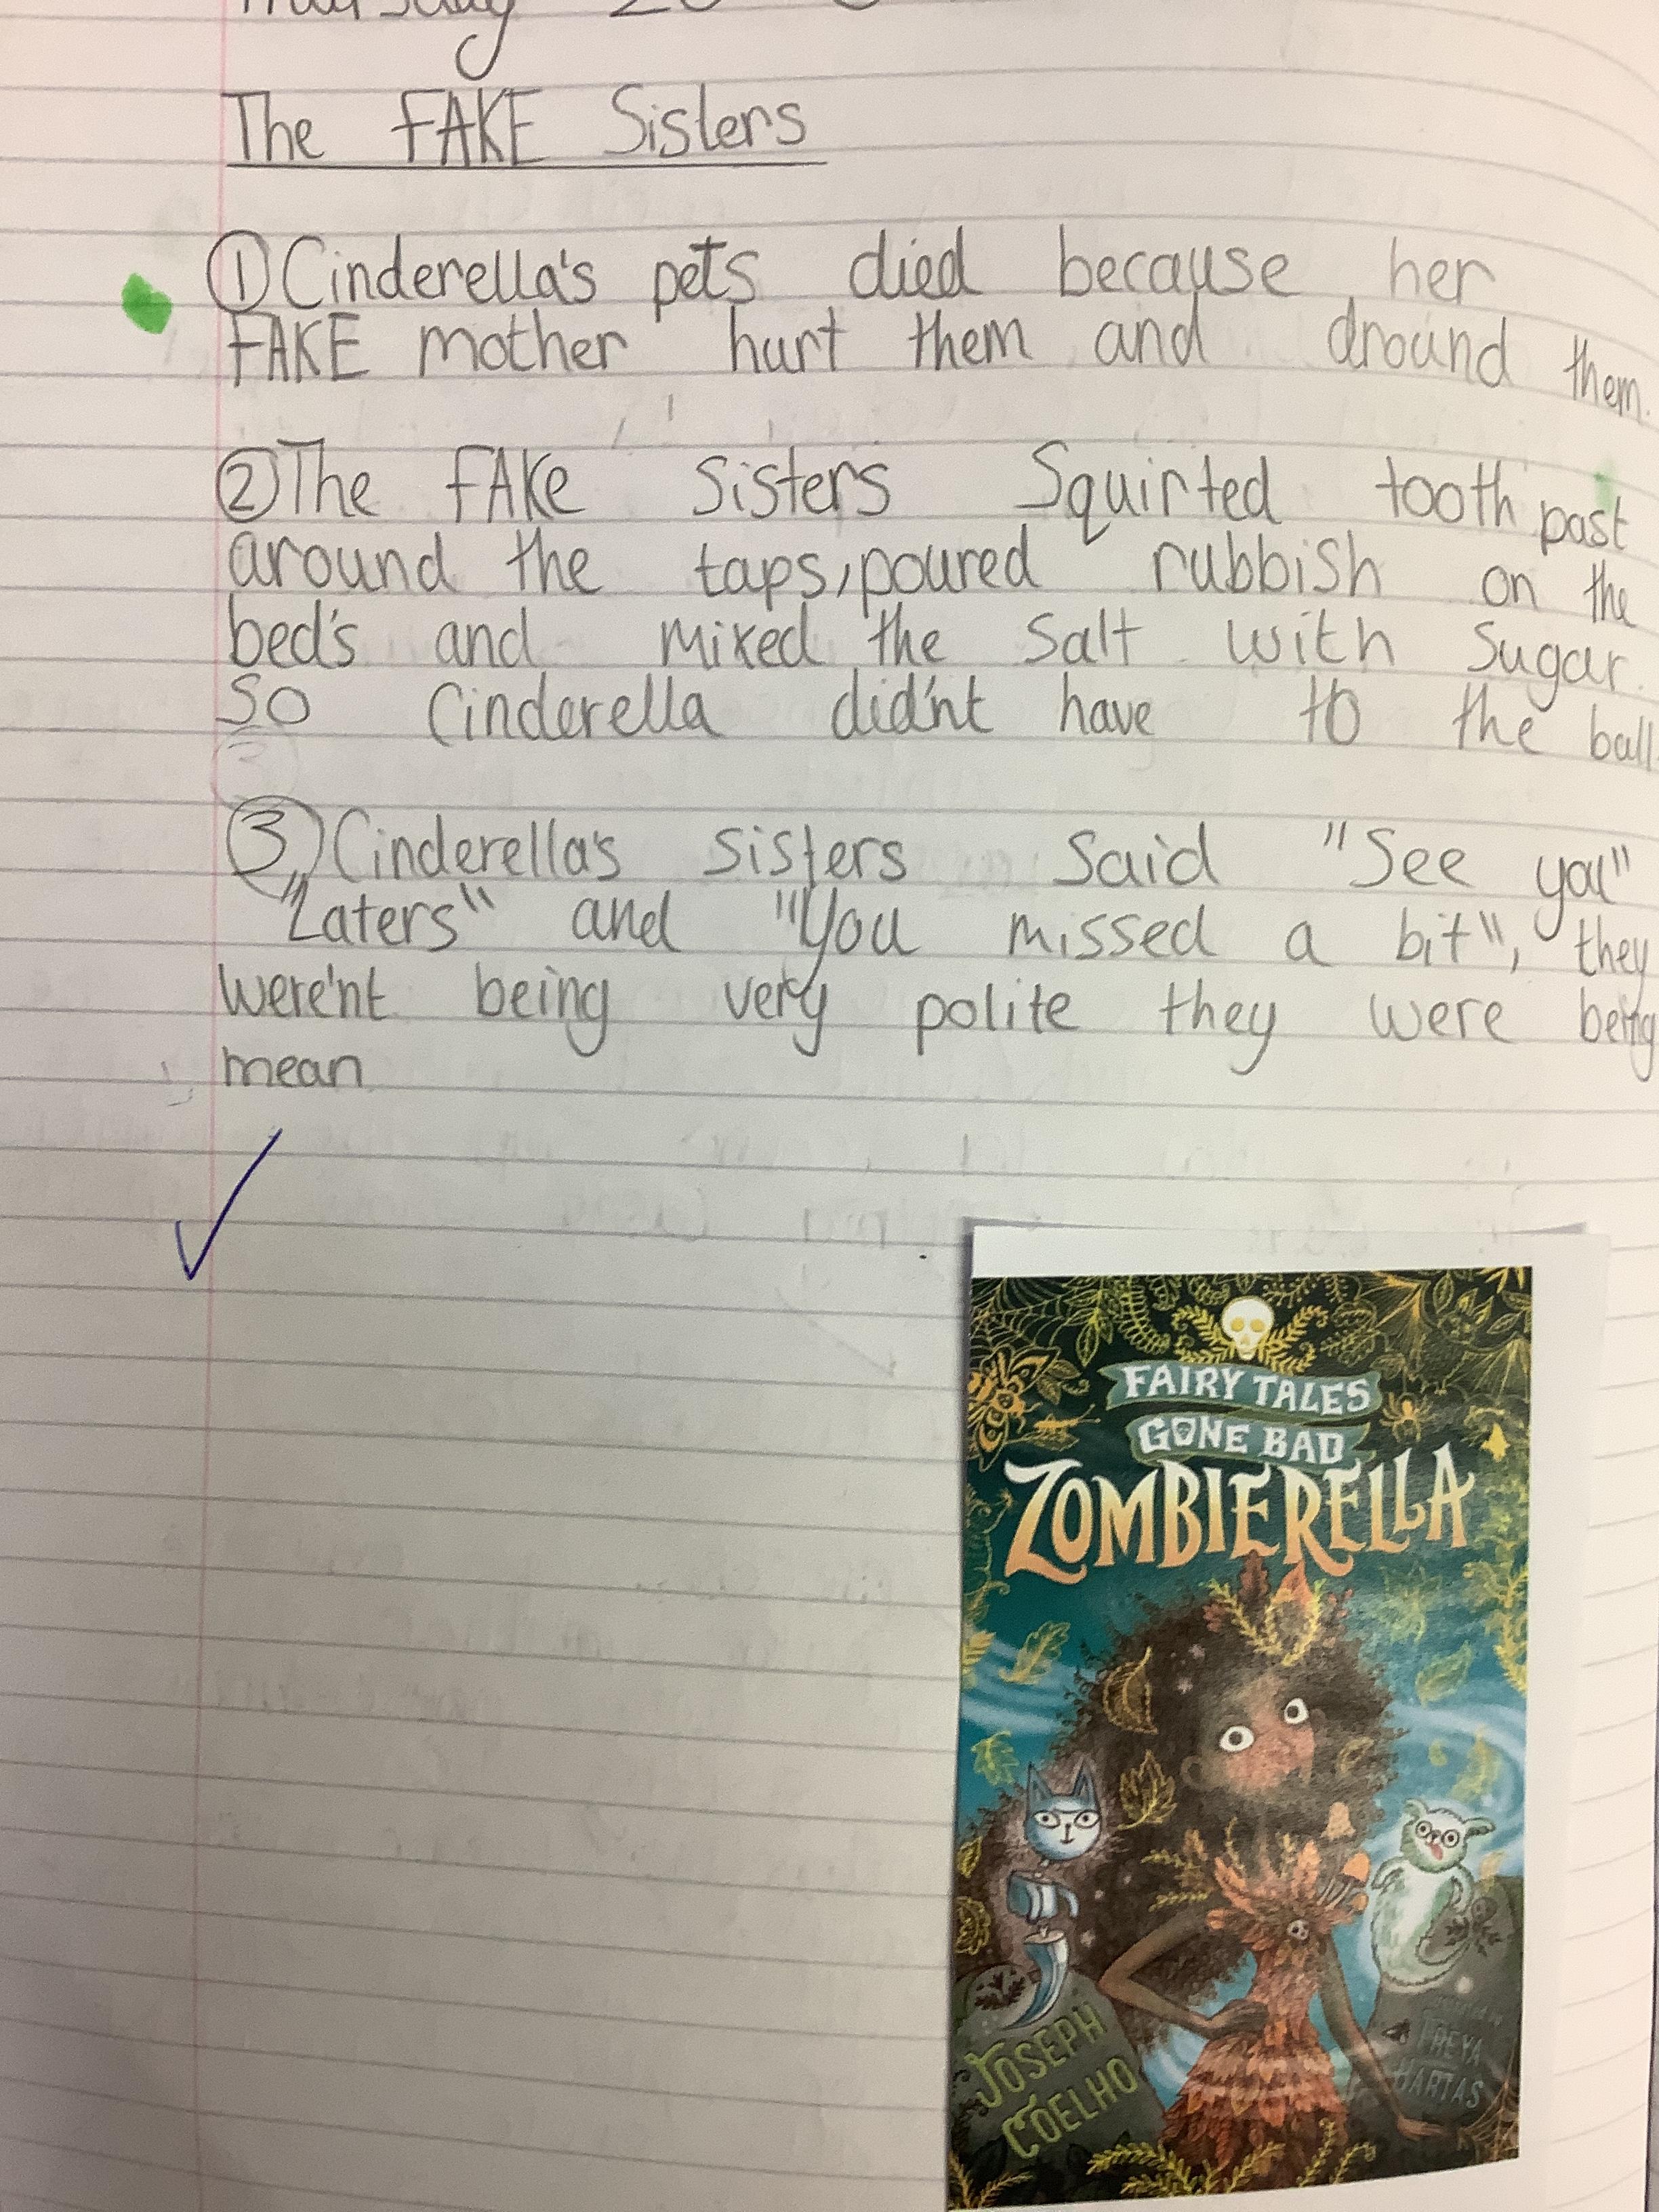 Thursday 20
The FAKE Sisters
① Cinderella's pets died because her
FAKE mother hurt them and dround them.
② The FAKe Sisters Squirted tooth past
around the taps, poured rubbish on the
bed's and mixed the Salt with Sugar.
So Cinderella did'nt have to the ball.
③ Cinderella's sisters Said "See ya!"
"Laters" and "You missed a bit", they
were'nt being very polite they were being
mean
FAIRY TALES
GONE BAD
ZOMBIERELLA
JOSEPH
COELHO
FREYA
HARTAS